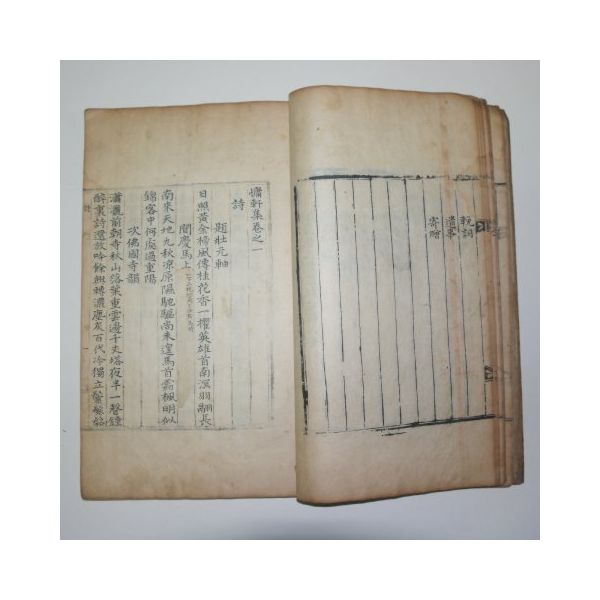 輓詞
遺事
寄贈
慵軒集卷之一
詩
題壯元軸
日照黃金榜風傳桂花香一擢英雄首南溟羽翮長
聞慶馬上
南來天地九秋凉原隰馳驅尚未遑馬首霜楓明似
錦客中何處過重陽
次佛國寺韻
瀟灑前朝寺秋山落葉重雲邊千丈塔夜半一聲鍾
醉裏詩還放吟餘興轉濃塵灰百代冷獨立鬢